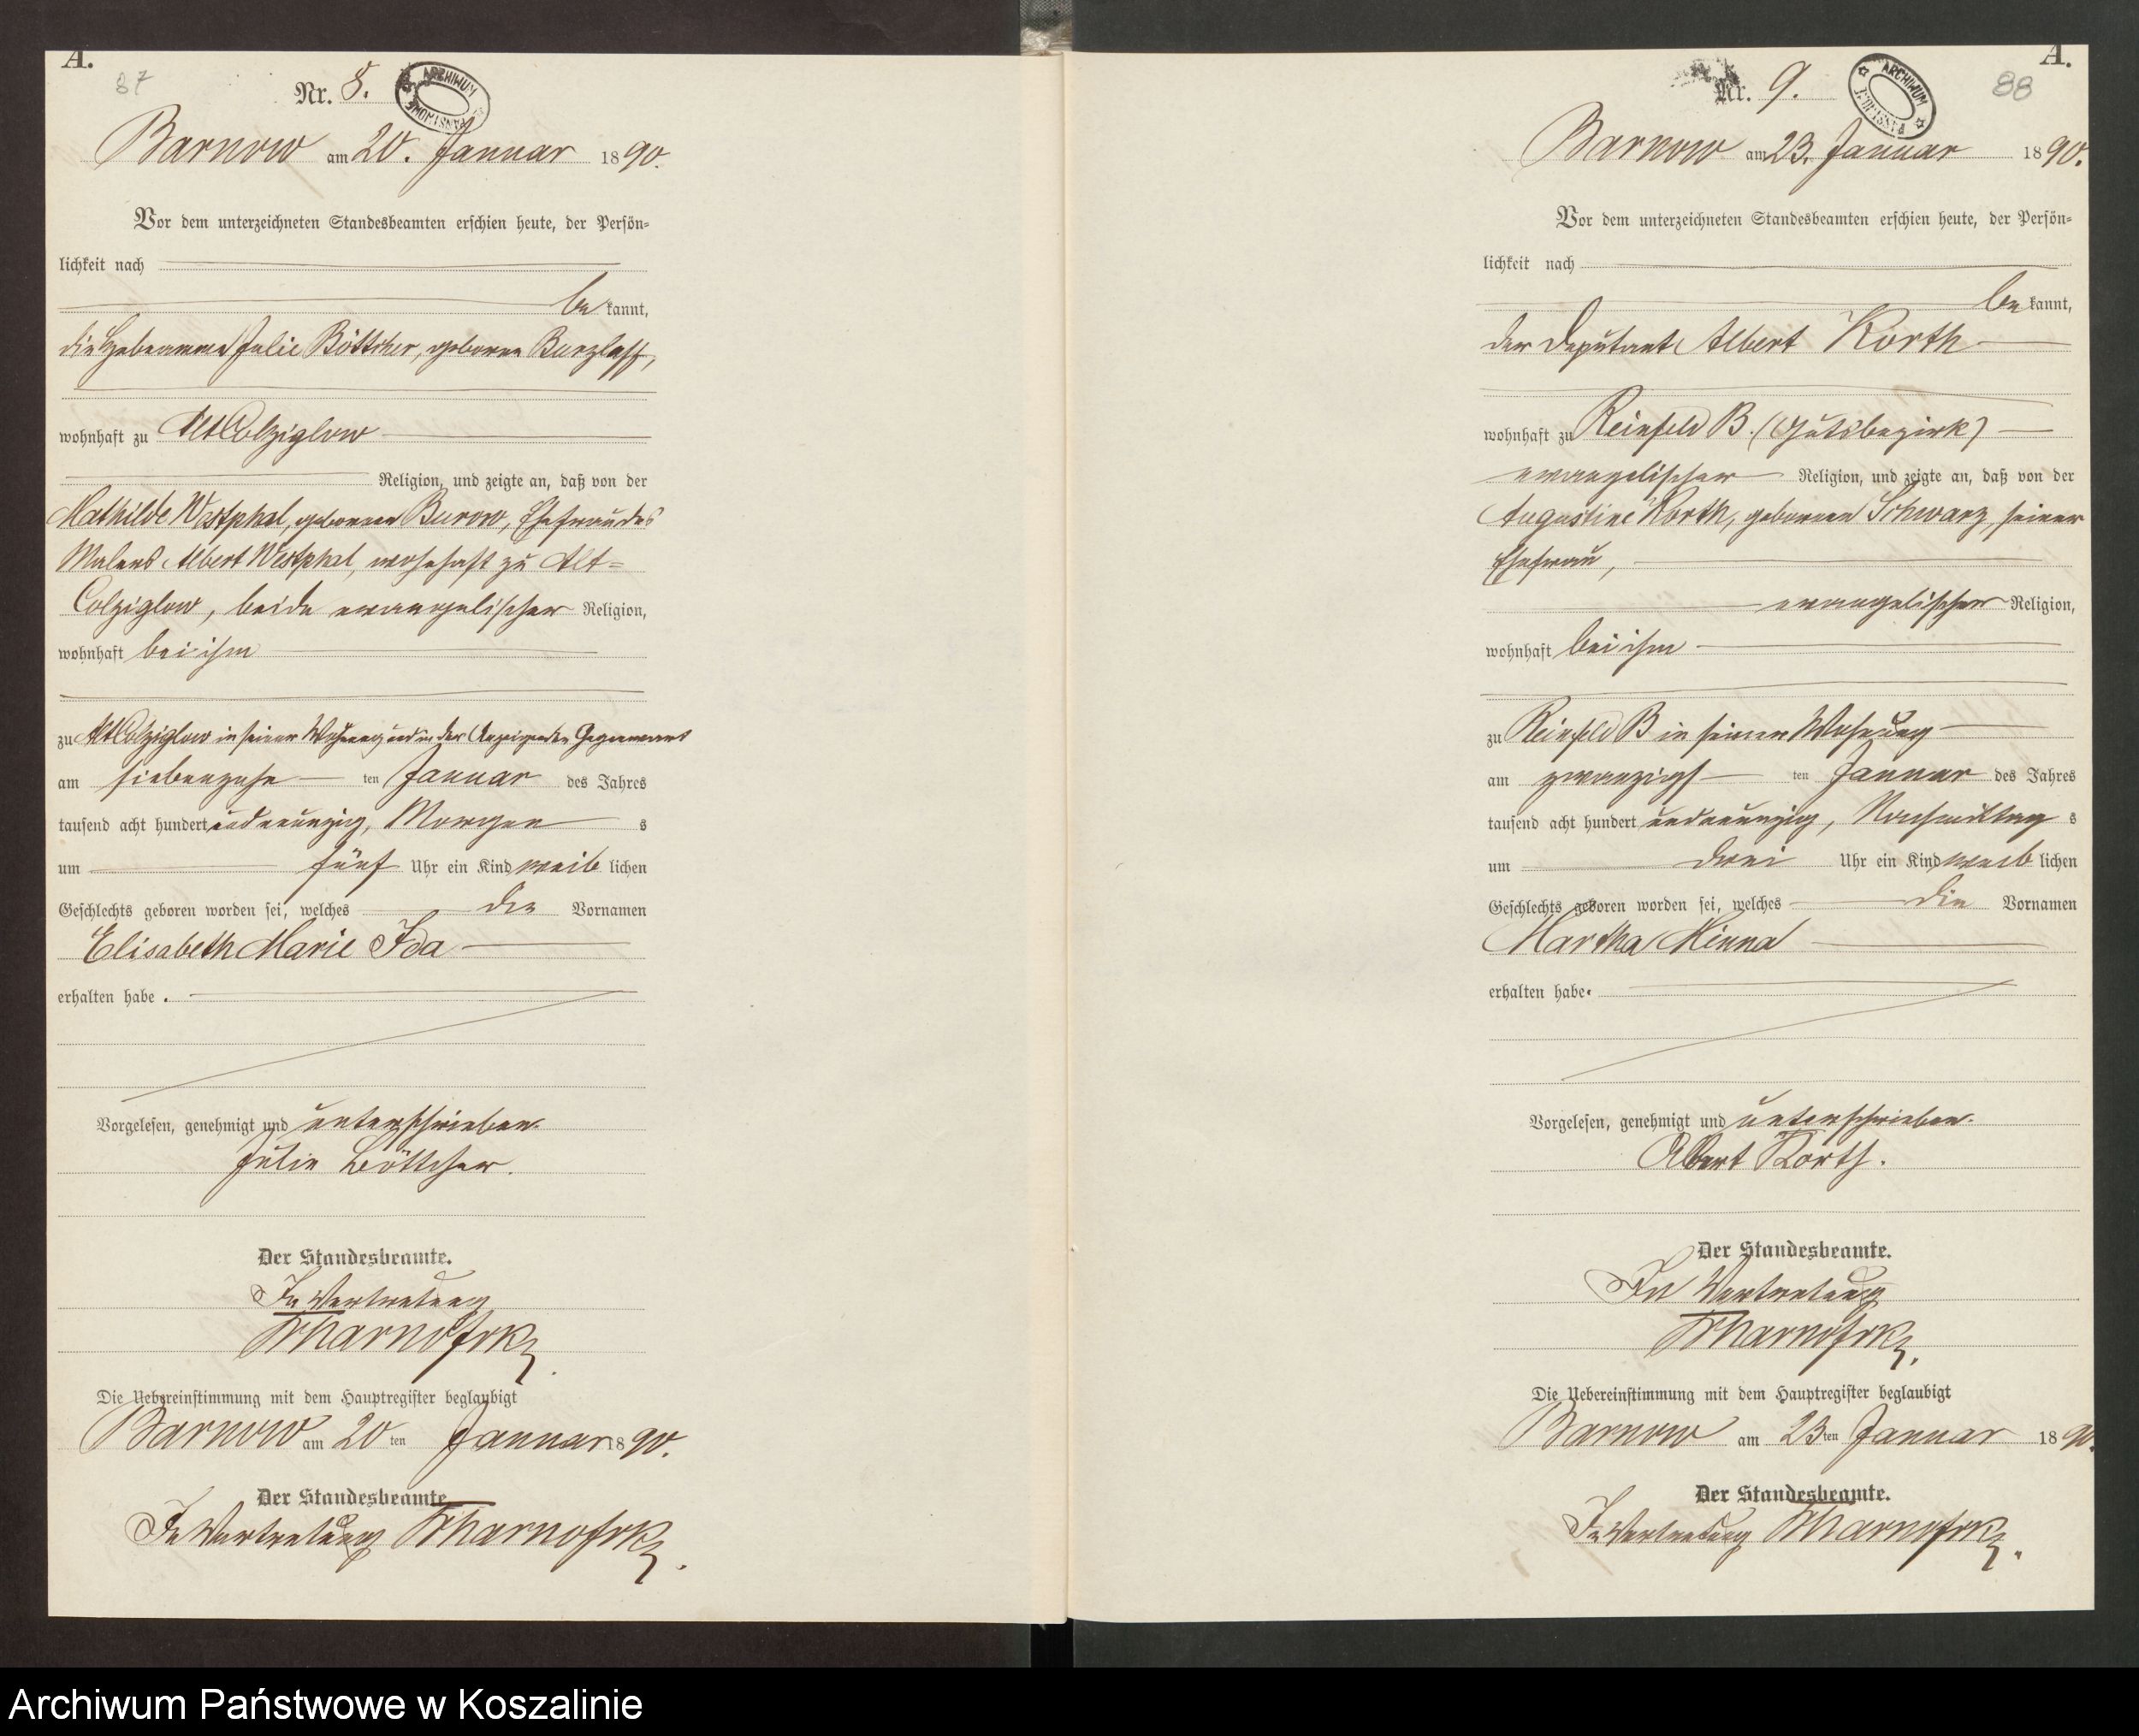 A.
87
Nr. 8.
ARCHIWUM PAŃSTWOWE
Barnow am 20. Januar 1890.
Vor dem unterzeichneten Standesbeamten erschien heute, der Persön-
lichkeit nach
be kannt,
die Hebeamme Julie Böttcher, geborne Burzlaff,
wohnhaft zu Alt Colziglow
Religion, und zeigte an, daß von der
Mathilde Westphal, geborenen Burow, Ehefrau des
Malers Albert Westphal, wohnhaft zu Alt-
Colziglow, beide evangelischer Religion,
wohnhaft bei ihm
zu Alt Colziglow in seiner Wohnung und in der Anzeigenden Gegenwart
am siebenzehn ten Januar des Jahres
tausend acht hundert und neunzig, Morgen s
um fünf Uhr ein Kind weib lichen
Geschlechts geboren worden sei, welches die Vornamen
Elisabeth Marie Ida
erhalten habe.
Vorgelesen, genehmigt und unterschrieben.
Julie Böttcher.
Der Standesbeamte.
In Vertretung
Die Uebereinstimmung mit dem Hauptregister beglaubigt
Barnow am 20 ten Januar 1890.
Der Standesbeamte
In Vertretung
A.
88
Nr. 9.
ARCHIWUM
Barnow am 23. Januar 1890.
Vor dem unterzeichneten Standesbeamten erschien heute, der Persön-
lichkeit nach
be kannt,
der Deputant Albert Korth
wohnhaft zu Reinfeld B. (Gutsbezirk)
evangelischer Religion, und zeigte an, daß von der
Augustine Korth, geborenen Schwarz, seiner
Ehefrau,
evangelischer Religion,
wohnhaft bei ihm
zu Reinfeld B in seiner Wohnung
am zwanzigs ten Januar des Jahres
tausend acht hundert und neunzig, Nachmittag s
um drei Uhr ein Kind weib lichen
Geschlechts geboren worden sei, welches die Vornamen
Martha Minna
erhalten habe.
Vorgelesen, genehmigt und unterschrieben.
Albert Korth.
Der Standesbeamte.
In Vertretung
Die Uebereinstimmung mit dem Hauptregister beglaubigt
Barnow am 23 ten Januar 1890.
Der Standesbeamte.
In Vertretung
Archiwum Państwowe w Koszalinie